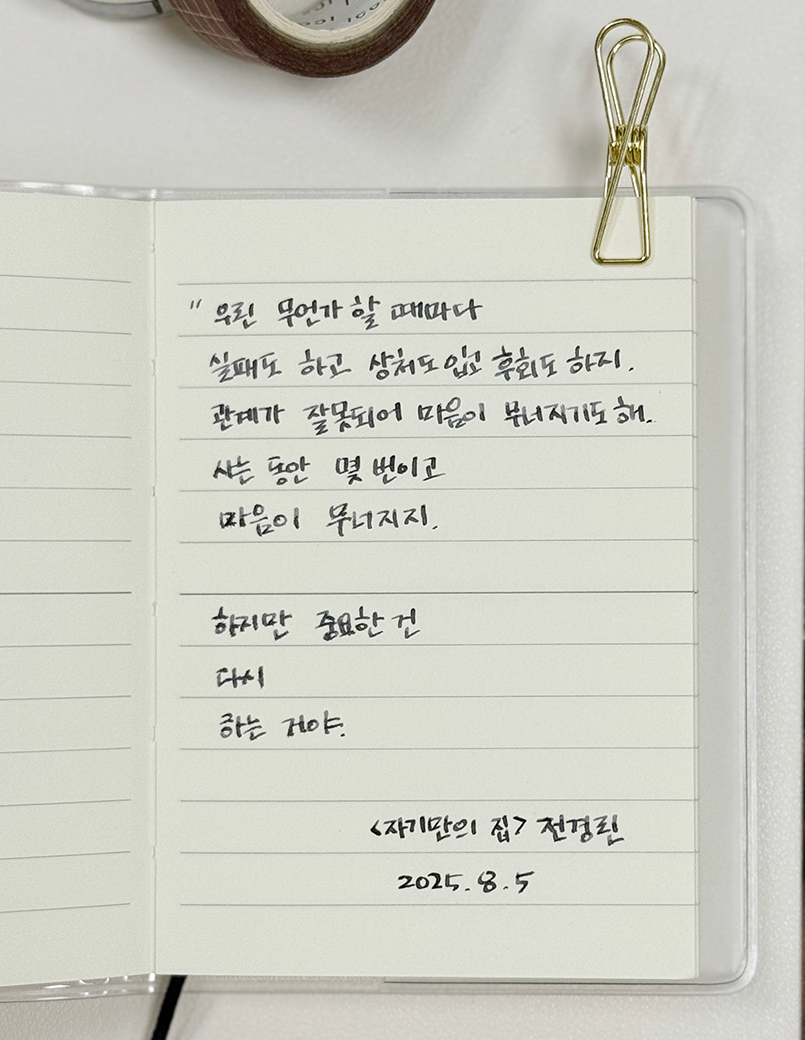 "우린 무언가 할 때마다
실패도 하고 상처도 입고 후회도 하지.
관계가 잘못되어 마음이 무너지기도 해.
사는 동안 몇 번이고
마음이 무너지지.
하지만 중요한 건
다시
하는 거야.
<자기만의 집> 전경린
2025. 8. 5